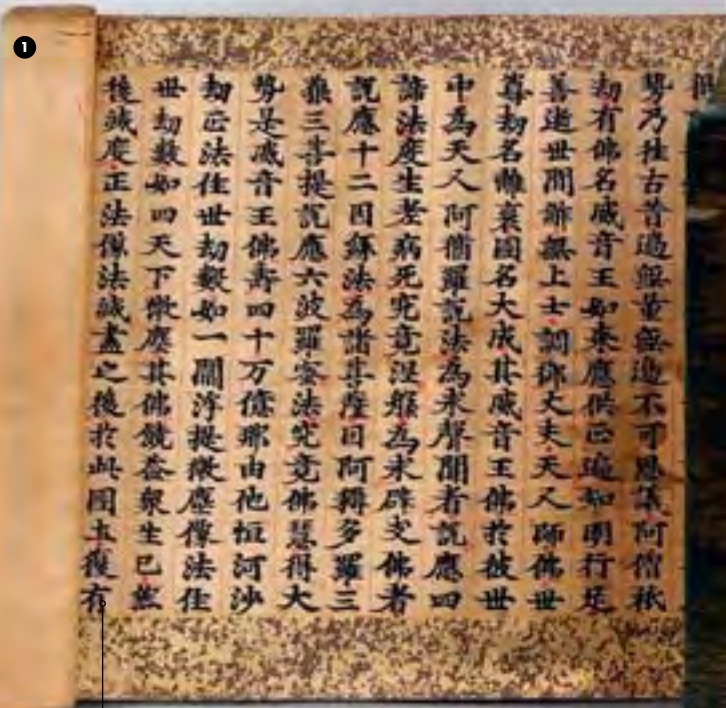 1
勢乃往古昔過無量無邊不可思議阿僧祇
劫有佛名威音王如來應供正遍知明行足
善逝世間解無上士調御丈夫天人師佛世
尊劫名離衰國名大成其威音王佛於彼世
中為天人阿脩羅說法為求聲聞者說應四
諦法度生老病死究竟涅槃為求辟支佛者
說應十二因緣法為諸菩薩因阿耨多羅三
藐三菩提說應六波羅蜜法究竟佛慧得大
勢是威音王佛壽四十万億那由他恒河沙
劫正法住世劫數如一閻浮提微塵像法住
世劫數如四天下微塵其佛饒益衆生已然
後滅度正法像法滅盡之後於此國土復有